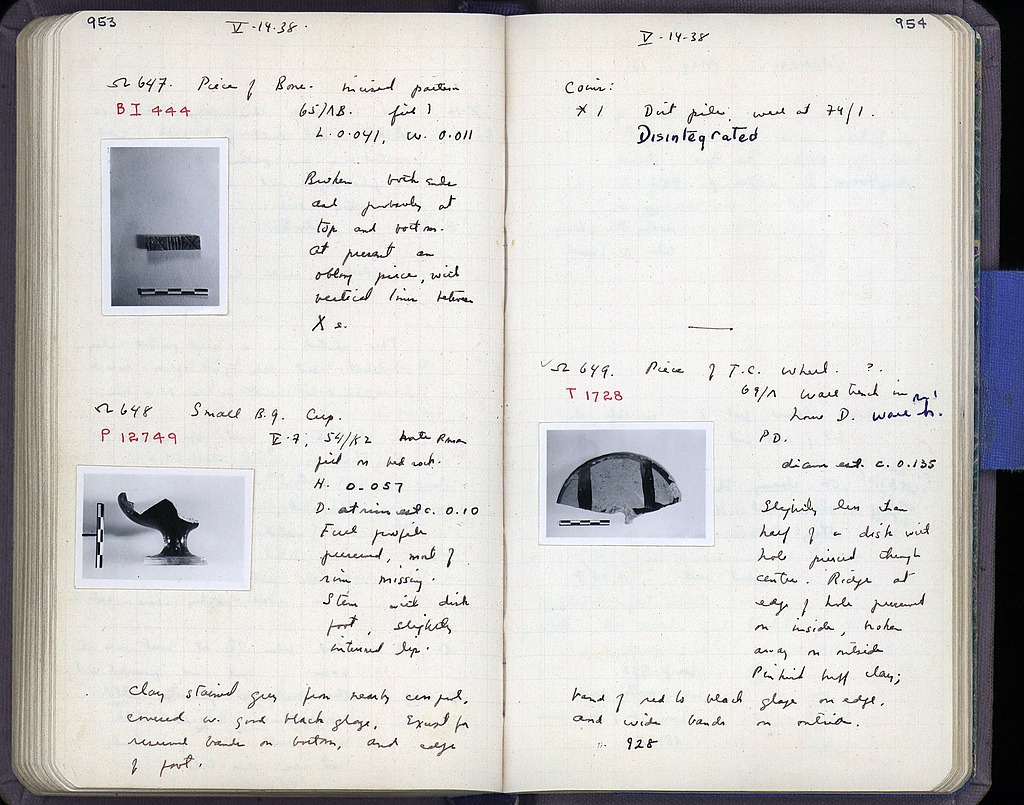 953
V-14-38.
Ω 647. Piece of Bone. incised pattern
BI 444
65/ΛΒ. fill 1
L. 0.041, W. 0.011
Broken both sides
and probably at
top and bottom.
At present an
oblong piece, with
vertical lines between
X s.
Ω 648 Small B.G. Cup.
P 12749
54/ΚΖ
fill on bed rock.
H. 0.057
D. at rim est. c. 0.10
Full profile
preserved, most of
rim missing.
Stem with disk
foot, slightly
inturned lip.
Clay stained grey from nearby cesspool,
covered w. good black glaze. Except for
reserved bands on bottom, and edge
of foot.
954
V-14-38
Coins:
X 1 Dirt pile, well at 74/Γ.
Disintegrated
Ω 649. Piece of T.C. wheel. ?.
T 1728
69/Λ
House D.
PD.
diam est. c. 0.135
Slightly less than
half of a disk with
hole pierced through
centre. Ridge at
edge of hole preserved
on inside, broken
away on outside
Pinkish buff clay;
band of red to black glaze on edge,
and wide bands on outside.
928